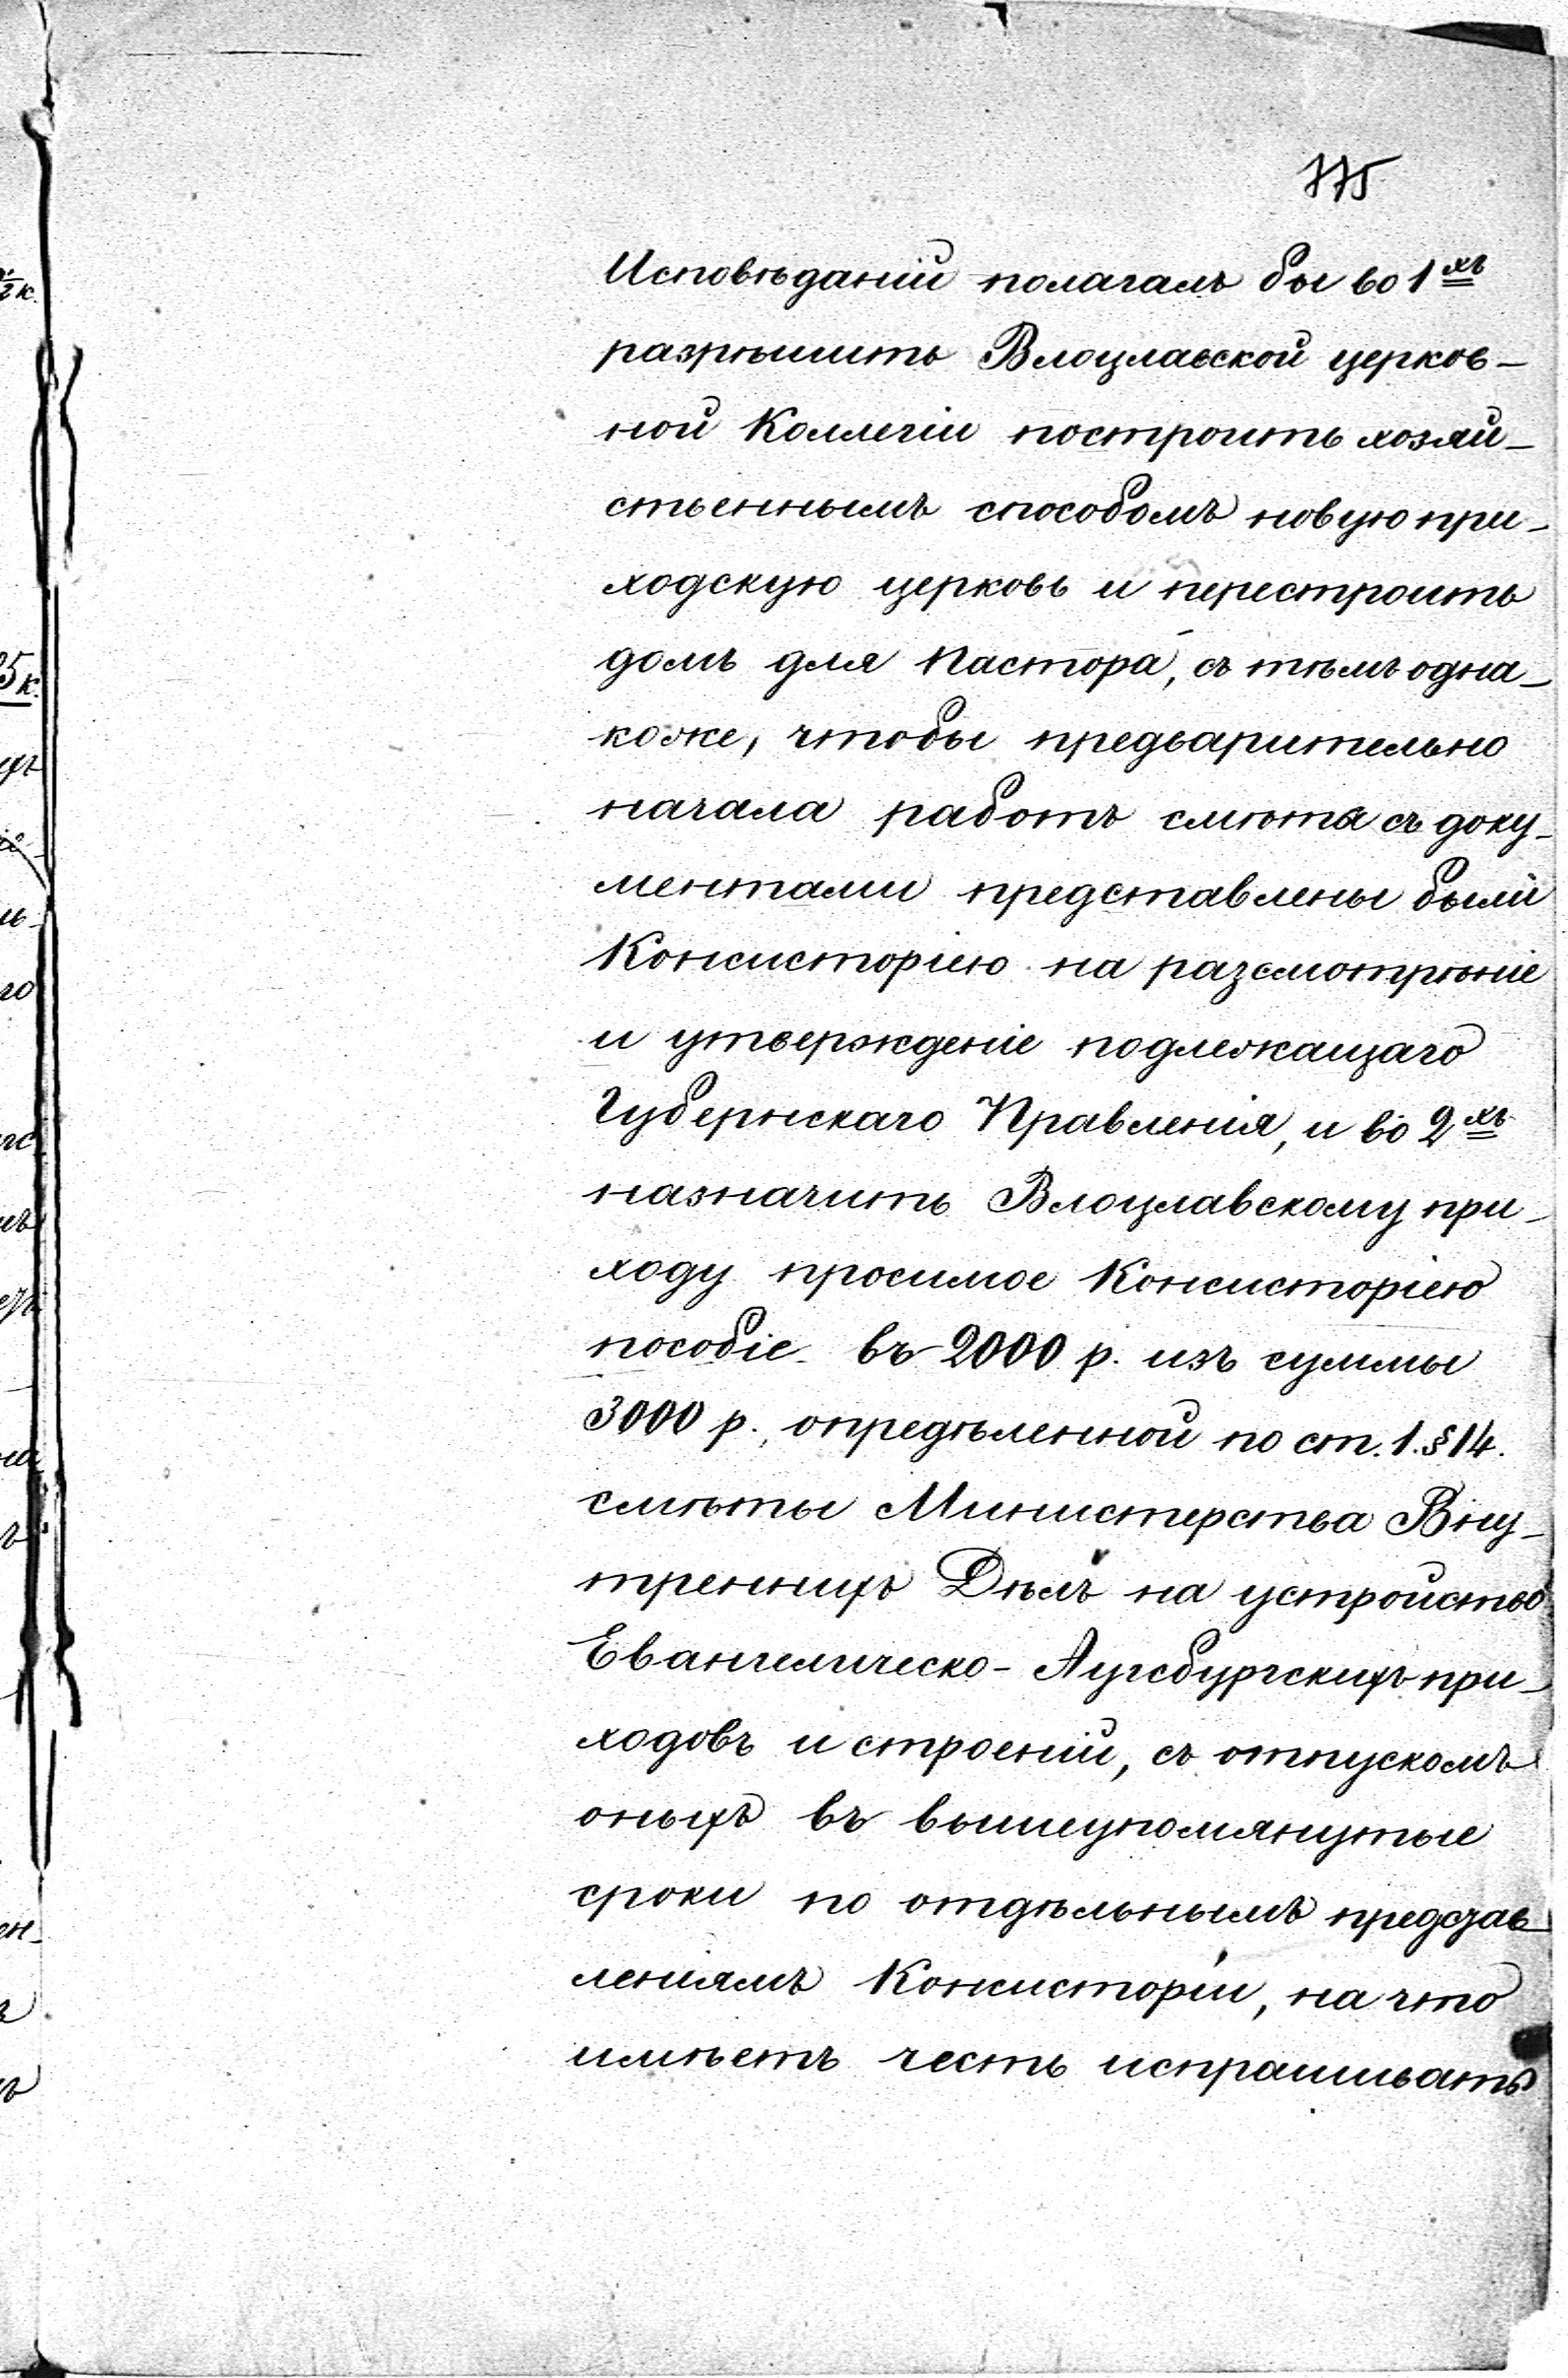 775
Исповѣданій полагалъ бы во 1хъ
разрѣшить Влоцлавской церков-
ной Коллегіи построить хозяй-
ственнымъ способомъ новую при-
ходскую церковь и перестроить
домъ для Пастора, съ тѣмъ одна-
коже, чтобы предварительно
начала работъ смѣта съ доку-
ментами представлены были
Консисторіею на разсмотрѣніе
и утвержденіе подлежащаго
Губернскаго Правленія, и во 2хъ
назначить Влоцлавскому при-
ходу просимое Консисторіею
пособіе въ 2000 р. изъ суммы
3000 р., опредѣленной по ст. 1. § 14.
смѣты Министерства Вну-
треннихъ Дѣлъ на устройство
Евангелическо-Аугсбургскихъ при-
ходовъ и строеній, съ отпускомъ
оныхъ въ вышеупомянутые
сроки по отдѣльнымъ представ-
леніямъ Консисторіи, на что
имѣетъ честь испрашивать